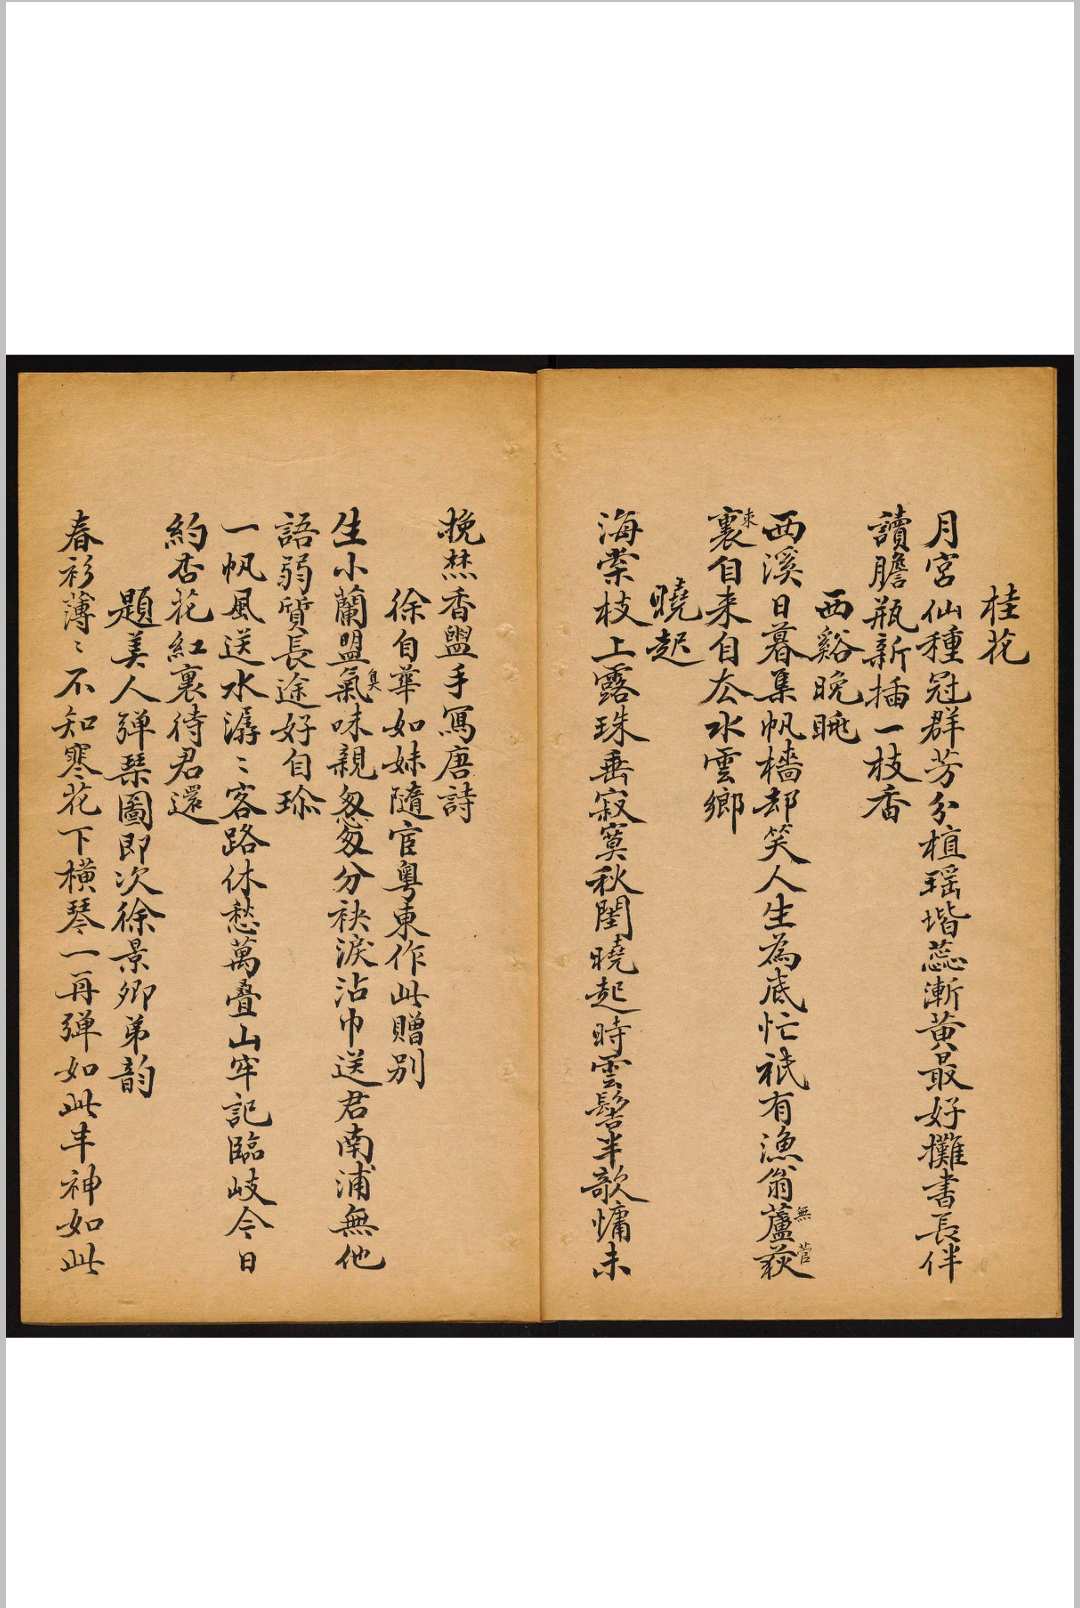 桂花
月宮仙種冠群芳分植瑶堦蕊漸黃最好攤書長伴
讀膽瓶新插一枝香
西谿晚眺
西溪日暮集帆檣却笑人生為底忙衹有漁翁蘆荻
無管
裏自来自厺水雲鄉
来
曉起
海棠枝上露珠垂寂寞秋閨曉起時雲髻半欹慵未
挽焚香盥手寫唐詩
徐自華如妹隨宦粤東作此贈別
生小蘭盟氣味親怱怱分袂淚沾巾送君南浦無他
臭
語弱質長途好自珎
一帆風送水潺〻客路休愁萬叠山牢記臨岐今日
約杏花紅裏待君還
題美人弹琹圖即次徐景卿弟韵
春衫薄〻不知寒花下橫琴一再弹如此丰神如此